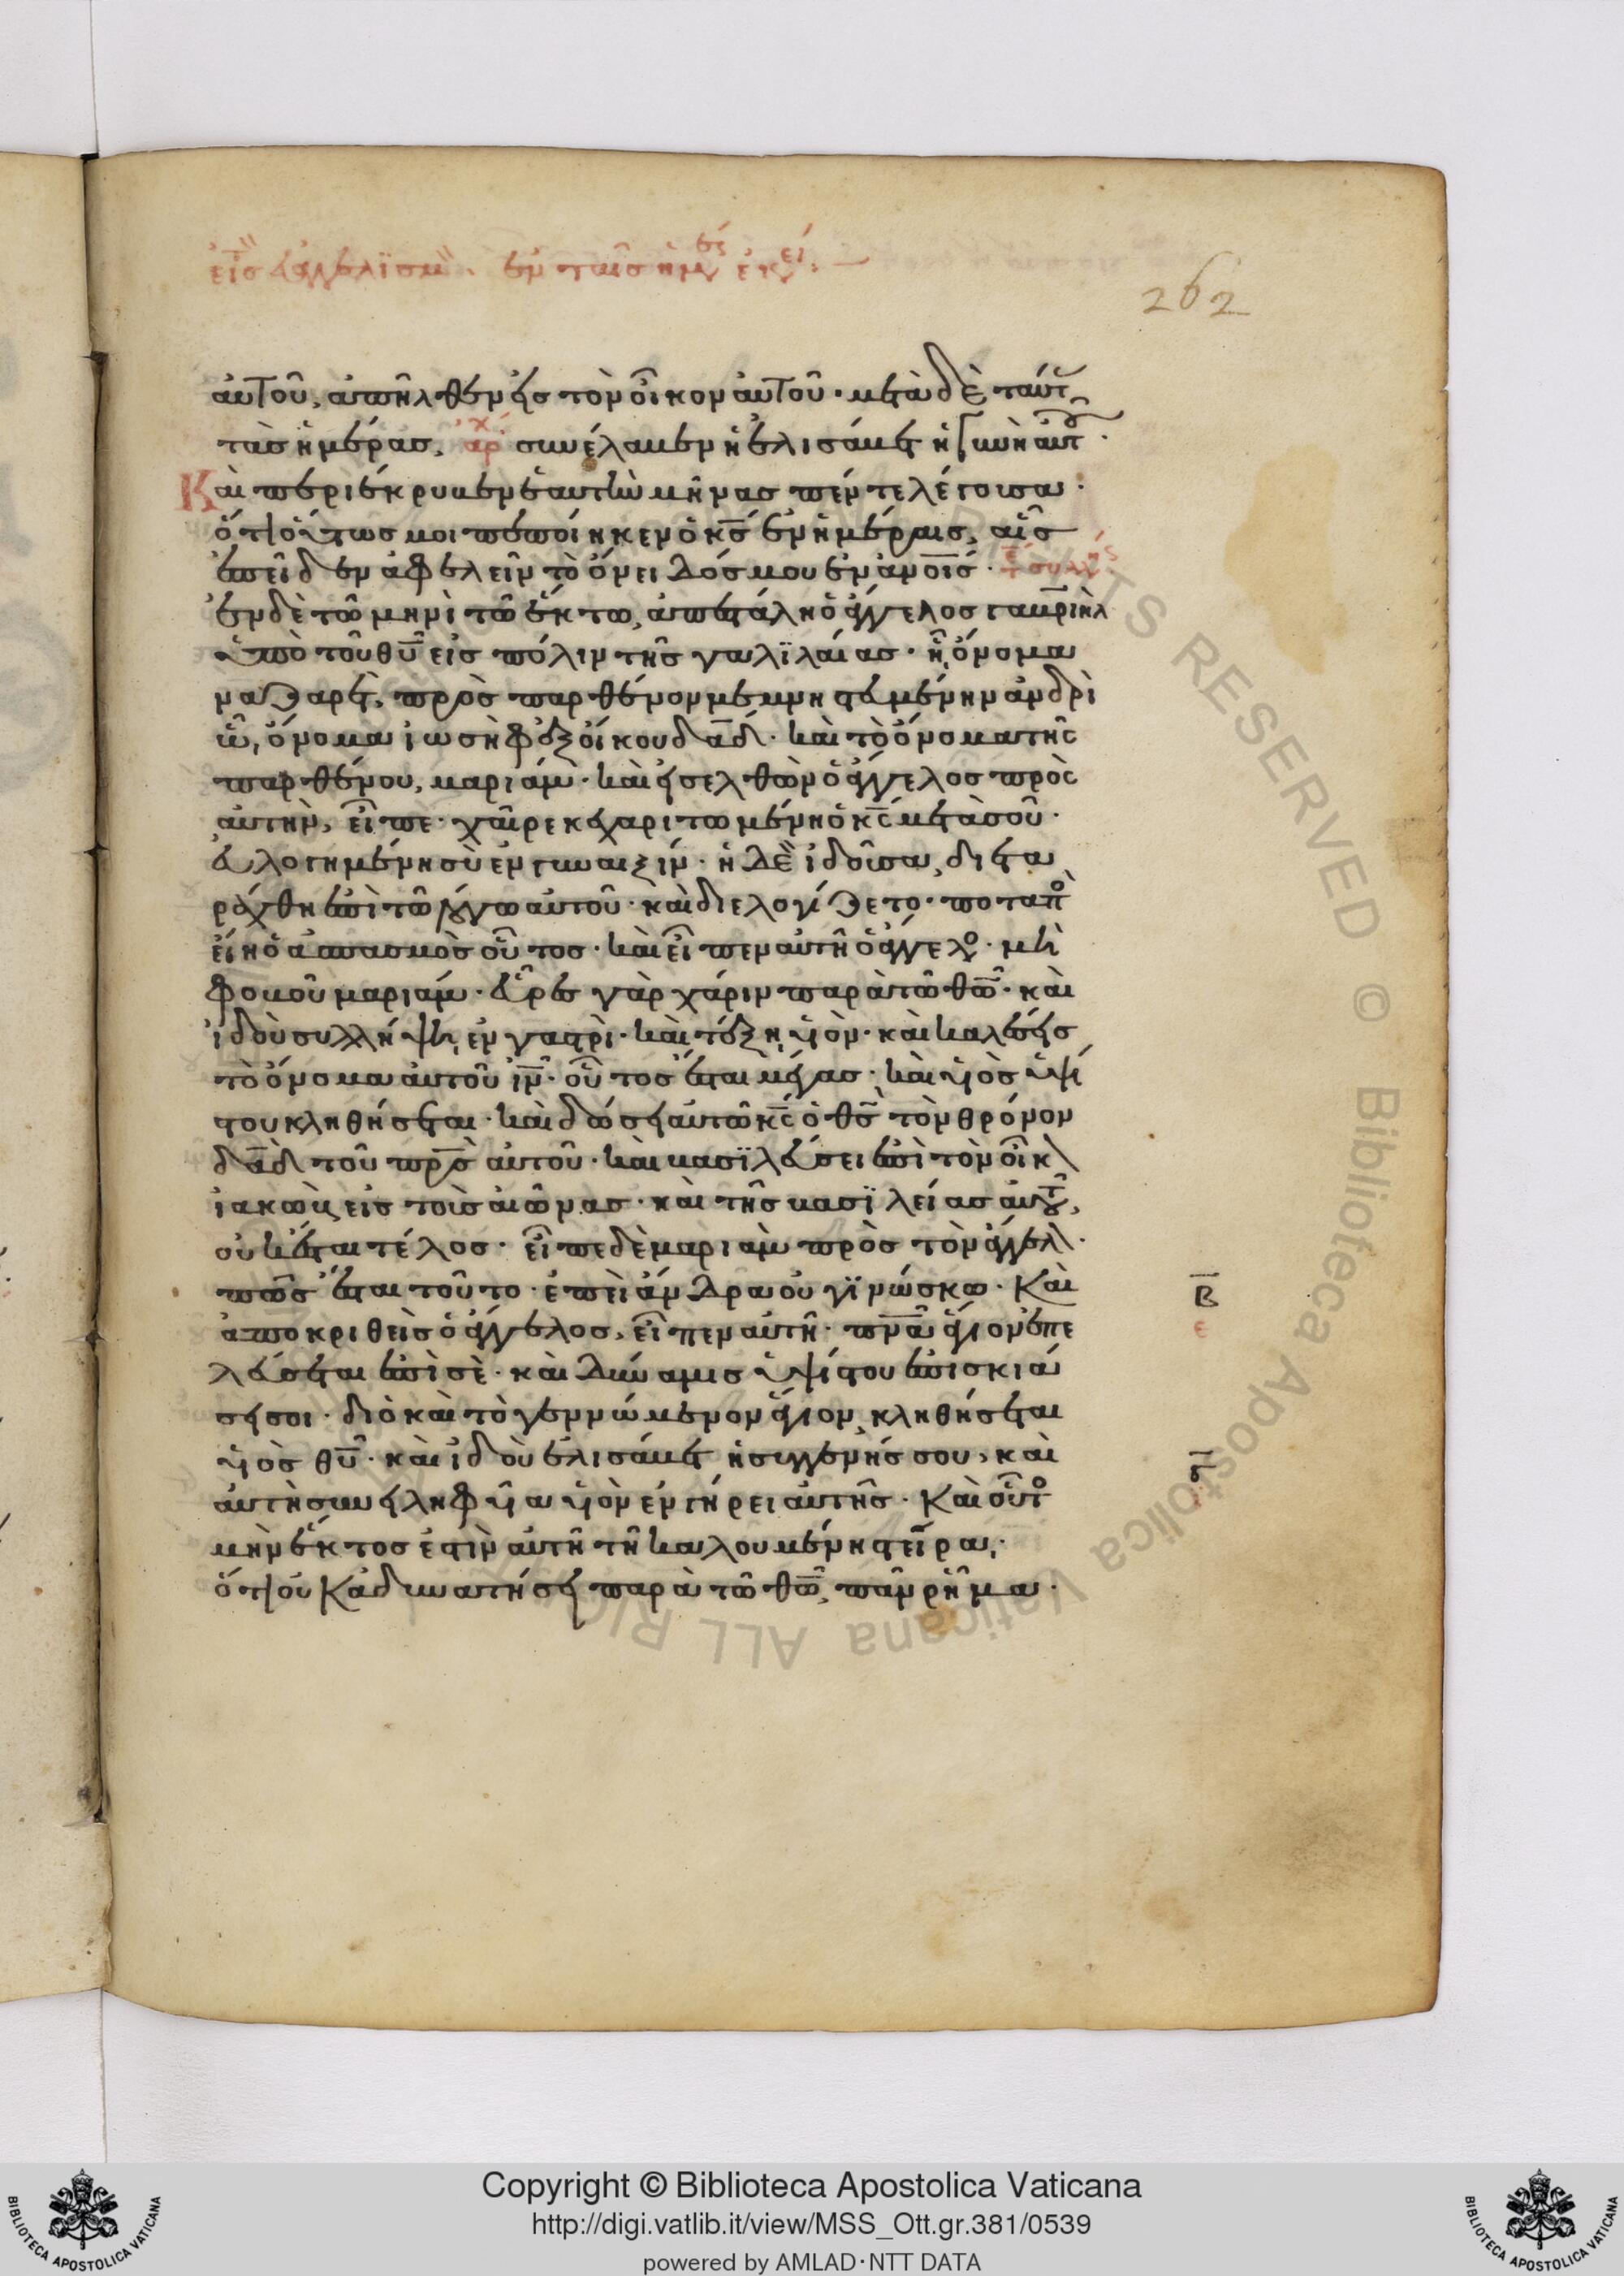 εἰς ἐυαγγελϊσμ. ἐν ταῖς ἡμ ἐκεί
262
αὐτοῦ, ἀπῆλθεν εἰς τὸν οἶκον αὐτοῦ· μετὰ δὲ ταύτ
τὰς ἡμέρας, ἀρχ συνέλαβεν ἡ ἐλισάβετ ἡ γυνὴ αὐτ·
Καὶ περιέκρυβεν ἑαυτὴν μῆνας πέντε λέγουσα·
ὅτι οὕτως μοι πεποίηκεν ὁ κς ἐν ἡμέραις, αἷς
ἐπεῖδεν ἀφελεῖν τὸ ὄνειδός μου ἐν ἀνοις·
ἐν δὲ τῶ μηνὶ τῶ ἕκτω, ἀπεστάλη ὁ ἄγγελος γαβριὴλ
ὑπὸ τοῦ θυ εἰς πόλιν τῆς γαλϊλαίας· ἧ, ὄνομα
ναζαρέτ, πρὸς παρθένον μεμνηστευμένην ἀνδρὶ
ὧ, ὄνομα ἰωσὴφ ἐξ οἴκου δαδ· καὶ τὸ ὄνομα τῆς
παρθένου, μαριάμ· καὶ εἰσελθὼν ὁ ἄγγελος πρὸς
αὐτὴν, εἶπε· χαῖρε κεχαριτωμένη ὁ κς μετὰ σοῦ·
εὐλογημένη σὺ ἐν γυναιξίν· ἡ δὲ ἰδοῦσα, διετα
ράχθη ἐπὶ τῶ λόγω αὐτοῦ· καὶ διελογίζετο· ποταπὸ
εἴη ὁ ἀσπασμὸς οὗτος· καὶ εἶπεν αὐτῆ ὁ ἄγγελο· μὴ
φοβοῦ μαριάμ· εὗρες γὰρ χάριν παρὰ τῶ θω· καὶ
ἰδοὺ συλλήψη ἐν γαστρὶ· καὶ τέξη υἱὸν· καὶ καλέσεις
τὸ ὄνομα αὐτοῦ ιν· οὗτος ἔσται μέγας· καὶ υἱὸς ὑψί
στου κληθήσεται· καὶ δώσει αὐτῶ κς ὁ θς τὸν θρόνον
δαδ τοῦ πρς αὐτοῦ· καὶ βασϊλεύσει ἐπὶ τὸν οἶκ
ἰακὼβ εἰς τοὺς αἰῶνας· καὶ τῆς βασϊλείας αὐτοῦ,
οὐκ ἔσται τέλος· εἶπε δὲ μαριὰμ πρὸς τὸν ἄγγελ·
πῶς ἔσται τοῦτο· ἐπεὶ ἄνδρα οὐ γϊνώσκω· Καὶ
β
ε
ἀποκριθεὶς ὁ ἄγγελος, εἶπεν αὐτῆ· πνα ἅγιον ἐπε
λεύσεται ἐπὶ σὲ· καὶ δύναμις ὑψίστου ἐπισκιά
σει σοι· διὸ καὶ τὸ γεννώμενον ἅγιον κληθήσεται
υἱὸς θυ· καὶ ἰδοὺ ἐλισάβετ ἡ συγγενής σου, καὶ
αὐτὴ συνειληφυῖα υἱὸν ἐν γήρει αὐτῆς· Καὶ οὗτο
μὴν ἕκτος ἐστὶν αὐτῆ τῆ καλουμένη στείρα·
ὅτι οὐκ ἀδυνατήσει παρὰ τῶ θω, πᾶν ῥῆμα·
Copyright © Biblioteca Apostolica Vaticana
http://digi.vatlib.it/view/MSS_Ott.gr.381/0539
powered by AMLAD·NTT DATA